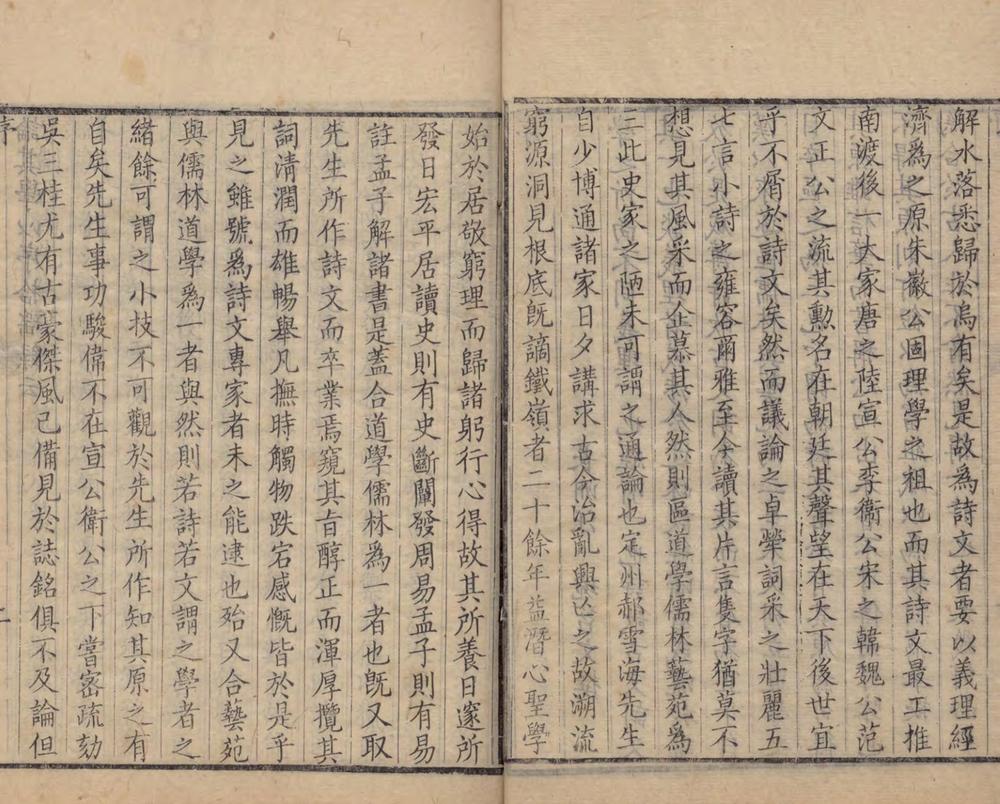 解水落悉歸於烏有矣是故為詩文者要以義理經
濟為之原朱徽公固理學之祖也而其詩文最工推
南渡後一大家唐之陸宣公李衛公宋之韓魏公范
文正公之流其勲名在朝廷其聲望在天下後世宜
乎不屑於詩文矣然而議論之卓犖詞采之壯麗五
七言小詩之雍容爾雅至今讀其片言隻字猶莫不
想見其風采而企慕其人然則區道學儒林藝苑為
三此史家之陋未可謂之通論也定州郝雪海先生
自少博通諸家日夕講求古今治亂興亾之故溯流
窮源洞見根底旣謫鐵嶺者二十餘年益潛心聖學
始於居敬窮理而歸諸躬行心得故其所養日邃所
發日宏平居讀史則有史斷闡發周易孟子則有易
註孟子解諸書是蓋合道學儒林為一者也旣又取
先生所作詩文而卒業焉窺其旨醇正而渾厚攬其
詞清潤而雄暢舉凡撫時觸物跌宕感慨皆於是乎
見之雖號爲詩文專家者未之能逮也殆又合藝苑
與儒林道學爲一者與然則若詩若文謂之學者之
緒餘可謂之小技不可觀於先生所作知其原之有
自矣先生事功駿偉不在宣公衛公之下嘗密疏劾
吳三桂尤有古豪傑風已備見於誌銘俱不及論但
序
二